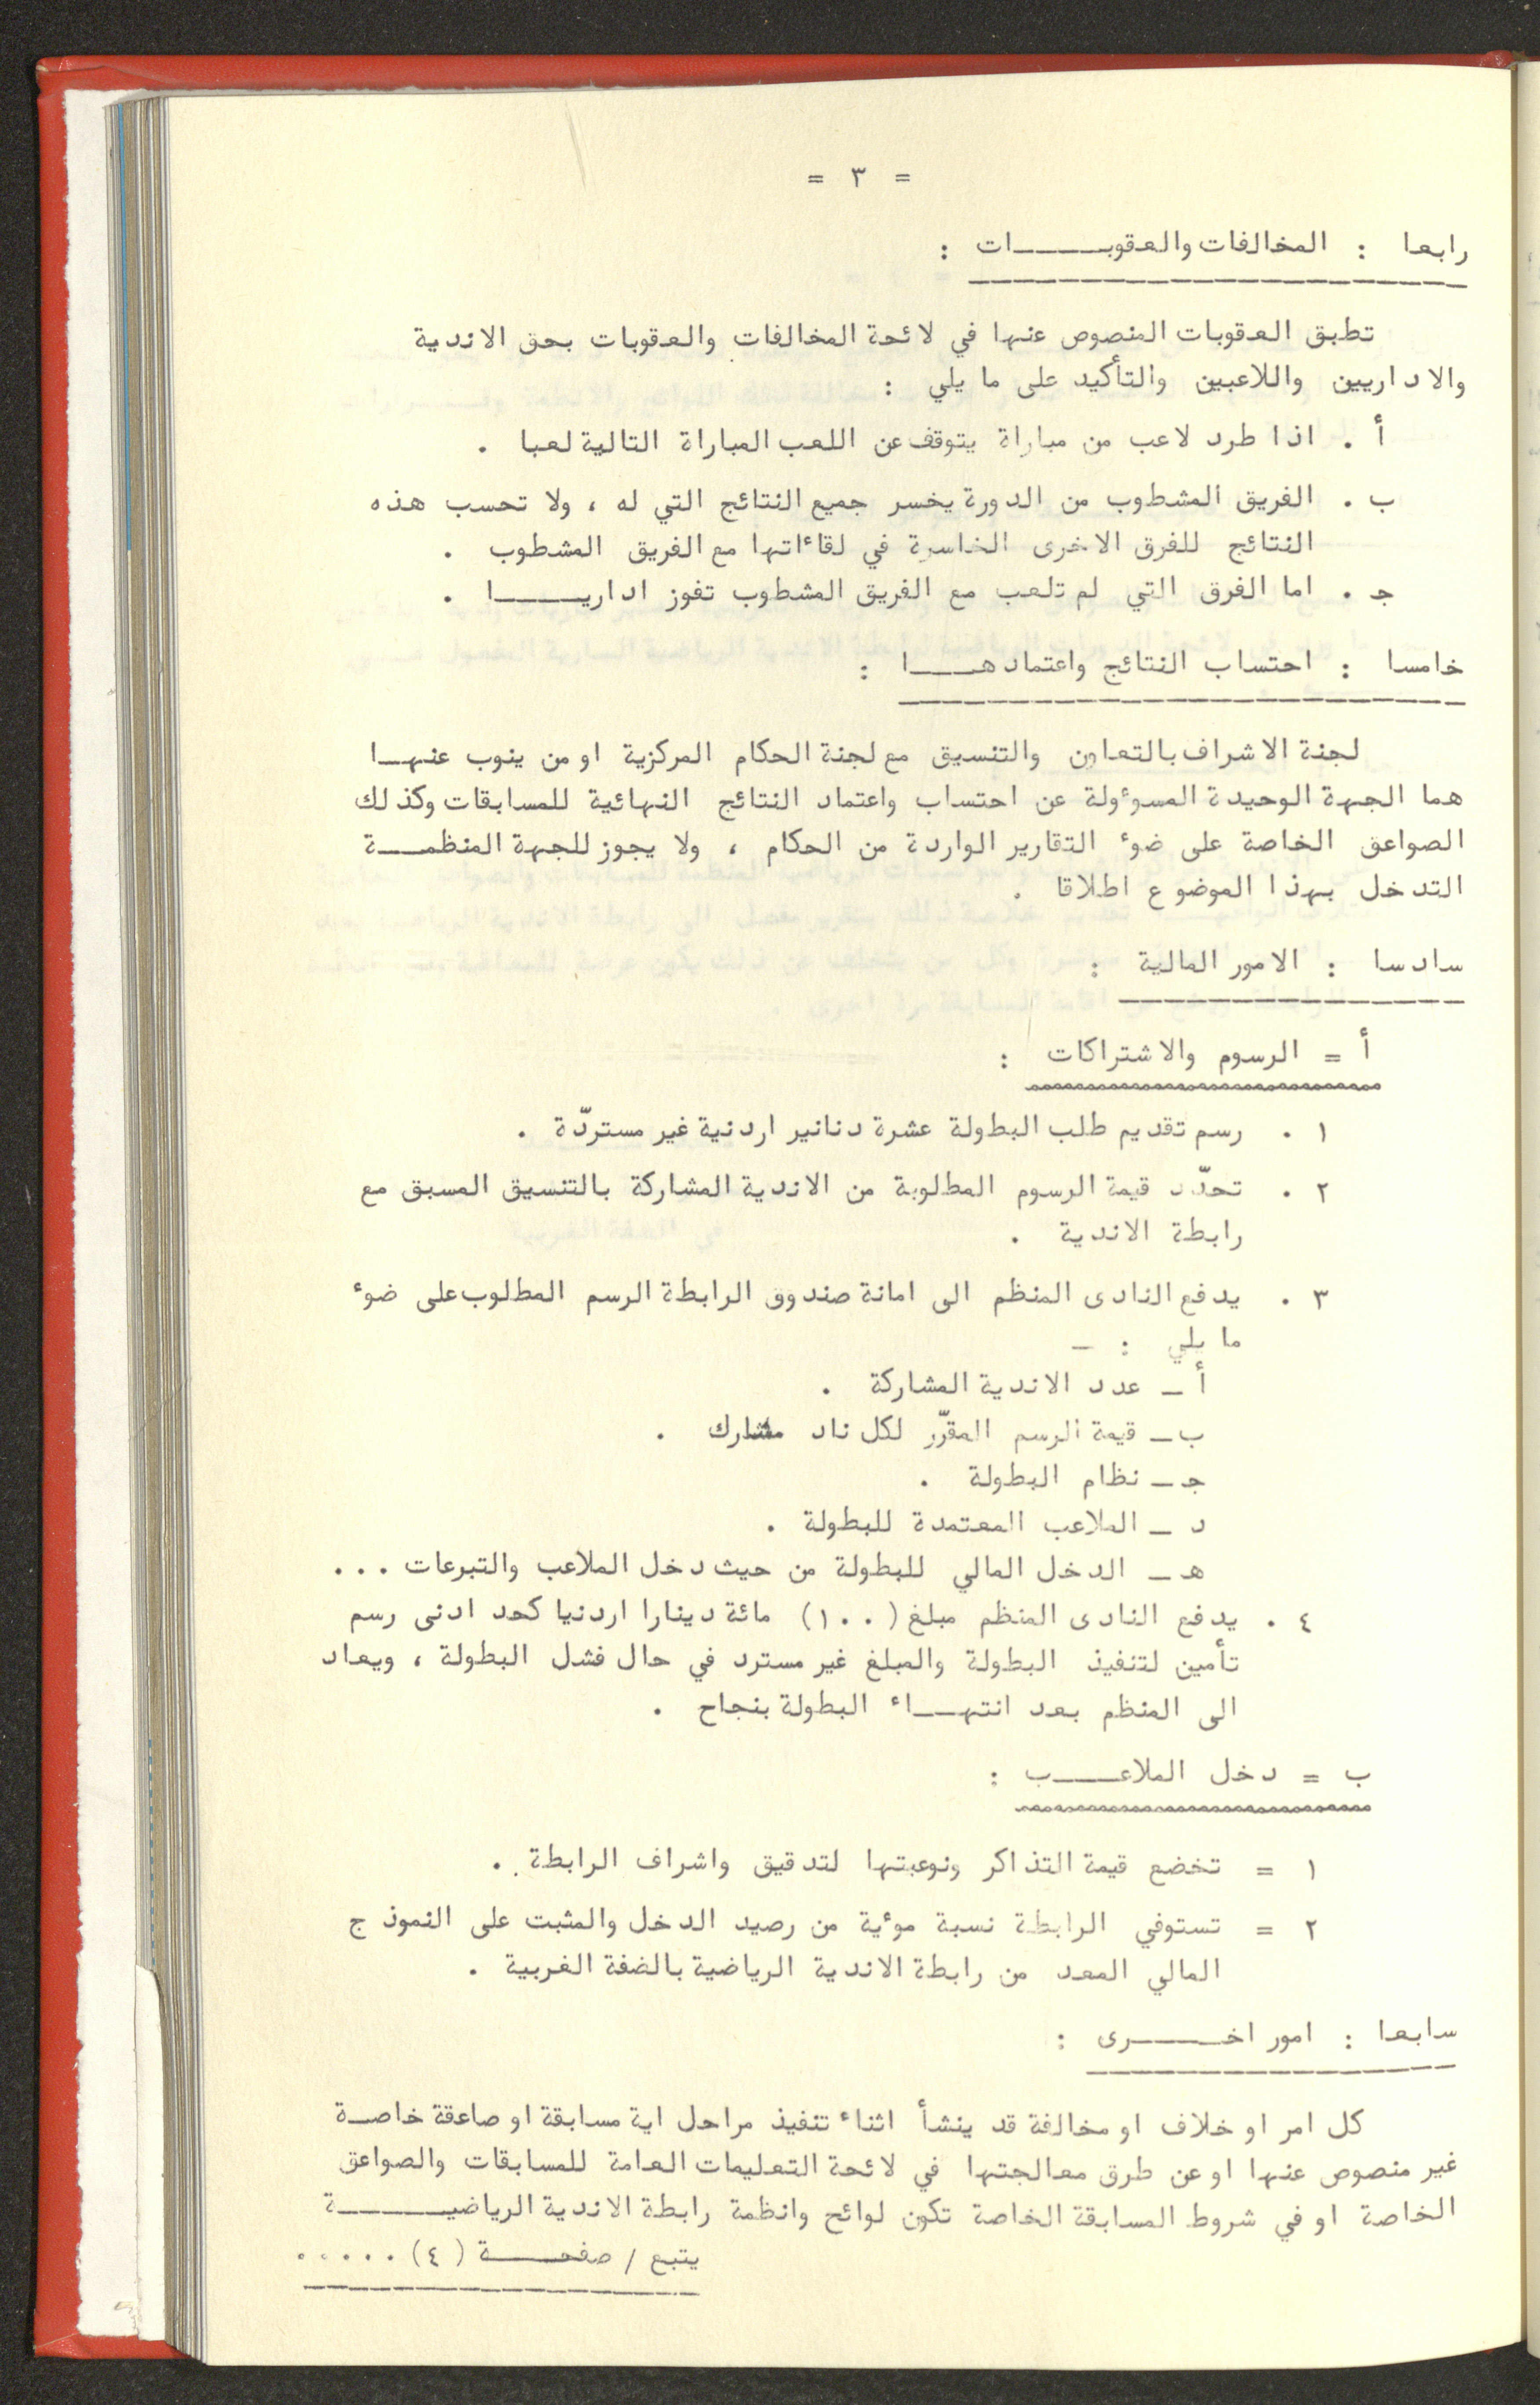 = ٣ =
رابعا : المخالفات والعقوبـــــات :
تطبق العقوبات المنصوص عنها في لائحة المخالفات والعقوبات بحق الاندية
والاداريين واللاعبين والتأكيد على ما يلي :
أ . اذا طرد لاعب من مباراة يتوقف عن اللعب المباراة التالية لعبا .
ب . الفريق المشطوب من الدورة يخسر جميع النتائج التي له ، ولا تحسب هذه
النتائج للفرق الاخرى الخاسرة في لقاءاتها مع الفريق المشطوب .
جـ . اما الفرق التي لم تلعب مع الفريق المشطوب تفوز اداريـــــا .
خامسا : احتساب النتائج واعتمادهـــــا :
لجنة الاشراف بالتعاون والتنسيق مع لجنة الحكام المركزية او من ينوب عنهـا
هما الجهة الوحيدة المسوءولة عن احتساب واعتماد النتائج النهائية للمسابقات وكذلك
الصواعق الخاصة على ضوء التقارير الواردة من الحكام ، ولا يجوز للجهة المنظمـــة
التدخل بهذا الموضوع اطلاقا .
سادسا : الامور المالية :
أ = الرسوم والاشتراكات :
١ . رسم تقديم طلب البطولة عشرة دنانير اردنية غير مستردّة .
٢ . تحدّد قيمة الرسوم المطلوبة من الاندية المشاركة بالتنسيق المسبق مع
رابطة الاندية .
٣ . يدفع النادى المنظم الى امانة صندوق الرابطة الرسم المطلوب على ضوء
ما يلي : ـ
أ ـ عدد الاندية المشاركة .
ب ـ قيمة الرسم المقرّر لكل ناد مشارك .
جـ ـ نظام البطولة .
د ـ الملاعب المعتمدة للبطولة .
هـ ـ الدخل المالي للبطولة من حيث دخل الملاعب والتبرعات ...
٤ . يدفع النادى المنظم مبلغ (١٠٠) مائة دينارا اردنيا كحد ادنى رسم
تأمين لتنفيذ البطولة والمبلغ غير مسترد في حال فشل البطولة ، ويعاد
الى المنظم بعد انتهـــاء البطولة بنجاح .
ب = دخل الملاعـــــب :
١ = تخضع قيمة التذاكر ونوعيتها لتدقيق واشراف الرابطة .
٢ = تستوفي الرابطة نسبة موءية من رصيد الدخل والمثبت على النموذج
المالي المعد من رابطة الاندية الرياضية بالضفة الغربية .
سابعا : امور اخـــــرى :
كل امر او خلاف او مخالفة قد ينشأ اثناء تنفيذ مراحل اية مسابقة او صاعقة خاصـة
غير منصوص عنها او عن طرق معالجتها في لائحة التعليمات العامة للمسابقات والصواعق
الخاصة او في شروط المسابقة الخاصة تكون لوائح وانظمة رابطة الاندية الرياضيـــــة
يتبع / صفحـــــة (٤) .....